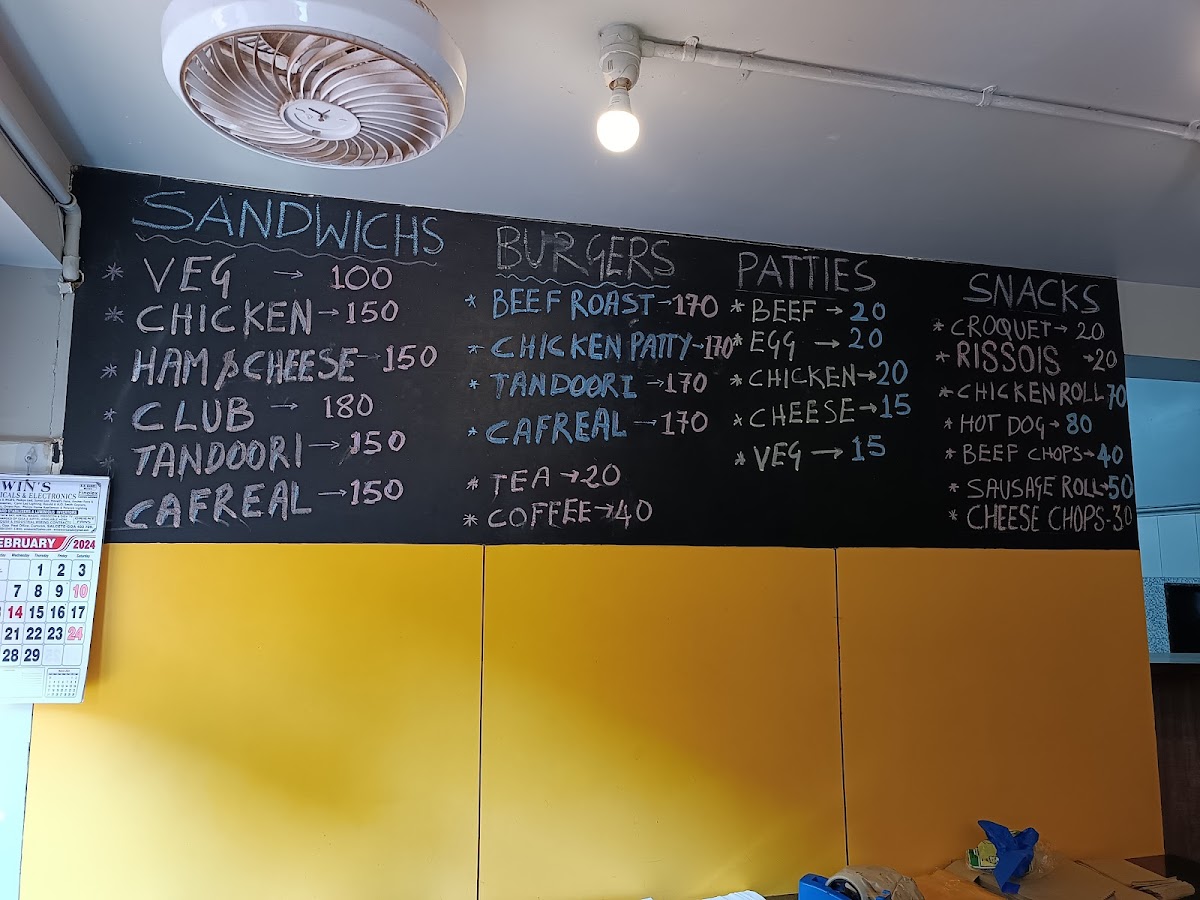 SANDWICHS
* VEG → 100
* CHICKEN → 150
* HAM & CHEESE → 150
* CLUB → 180
* TANDOORI → 150
CAFREAL → 150
BURGERS
* BEEF ROAST → 170
* CHICKEN PATTY → 170
* TANDOORI → 170
* CAFREAL → 170
* TEA → 20
* COFFEE → 40
PATTIES
* BEEF → 20
* EGG → 20
* CHICKEN → 20
* CHEESE → 15
* VEG → 15
SNACKS
* CROQUET → 20
* RISSOIS → 20
* CHICKEN ROLL 70
* HOT DOG → 80
* BEEF CHOPS → 40
* SAUSAGE ROLL → 50
* CHEESE CHOPS - 30
WIN'S
ICALS & ELECTRONICS
FEBRUARY 2024
Wednesday Thursday Friday Saturday
1 2 3
7 8 9 10
14 15 16 17
21 22 23 24
28 29